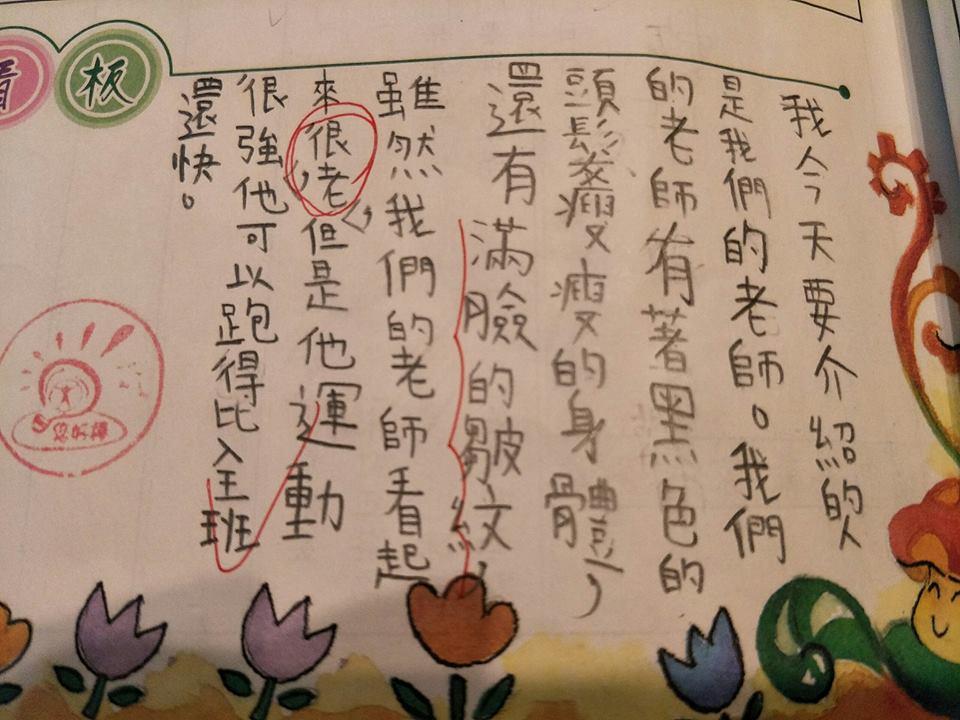 我今天要介紹的人
是我們的老師。我們
的老師有著黑色的
頭髮瘦瘦的身體,
還有滿臉的皺紋,
雖然我們的老師看起
來很老,但是他運動
很強他可以跑得比全班
還快。
板